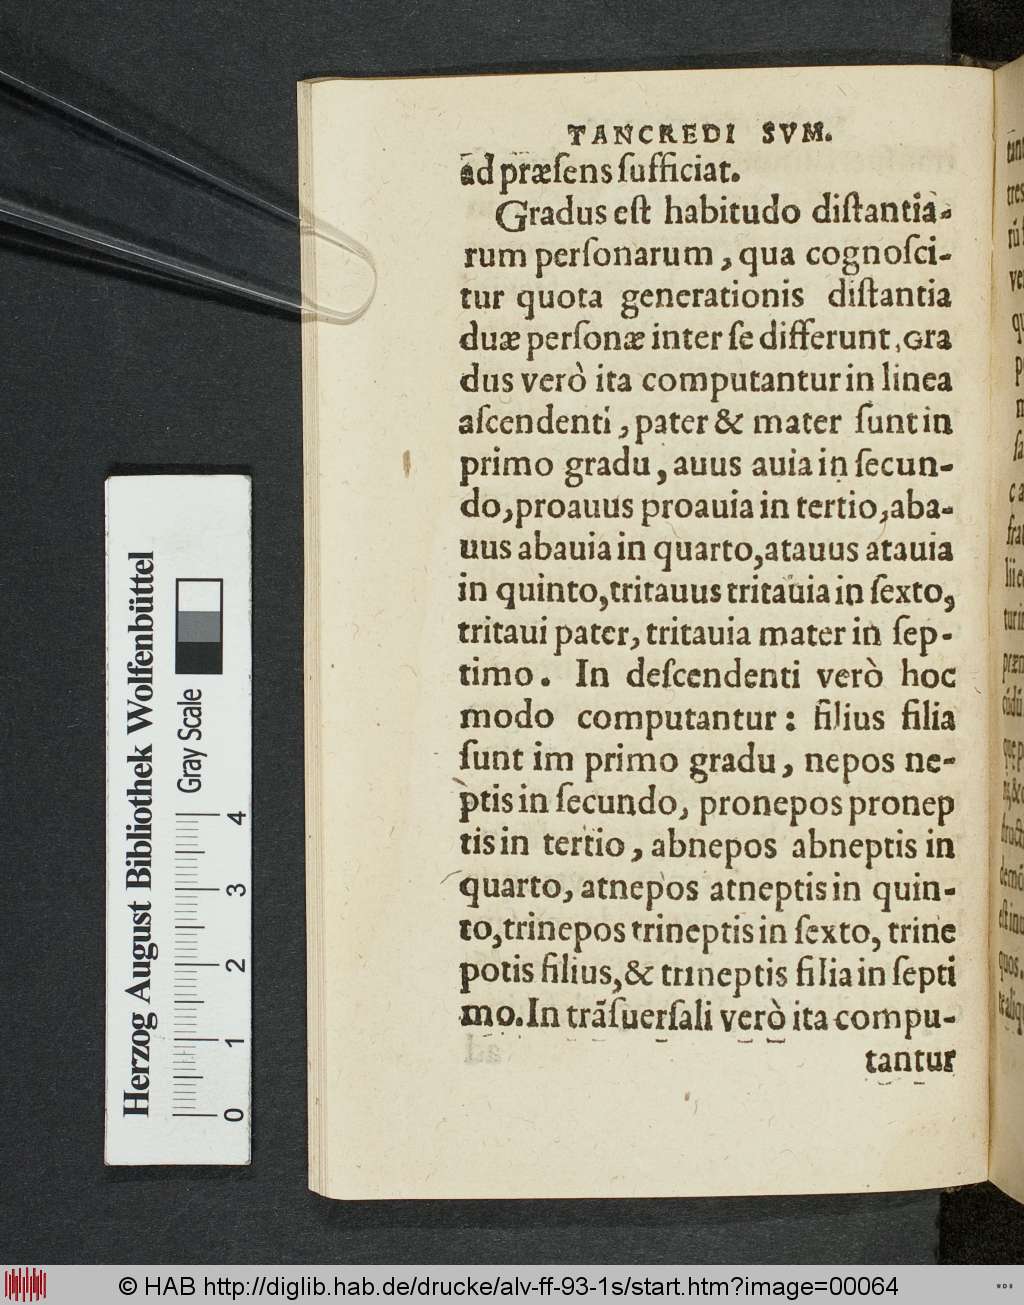 TANCREDI SVM.
ad præſens ſufficiat.
Gradus eſt habitudo diſtantia-
rum perſonarum, qua cognoſci-
tur quota generationis diſtantia
duæ perſonæ inter ſe differunt, Gra
dus verò ita computantur in linea
aſcendenti, pater & mater ſunt in
primo gradu, auus auia in ſecun-
do, proauus proauia in tertio, aba-
uus abauia in quarto, atauus atauia
in quinto, tritauus tritauia in ſexto,
tritaui pater, tritauia mater in ſep-
timo. In deſcendenti verò hoc
modo computantur: filius filia
ſunt im primo gradu, nepos ne-
ptis in ſecundo, pronepos pronep
tis in tertio, abnepos abneptis in
quarto, atnepos atneptis in quin-
to, trinepos trineptis in ſexto, trine
potis filius, & trineptis filia in ſepti
mo. In trãſuerſali verò ita compu-
tantur
Herzog August Bibliothek Wolfenbüttel
Gray Scale
0 1 2 3 4
© HAB http://diglib.hab.de/drucke/alv-ff-93-1s/start.htm?image=00064